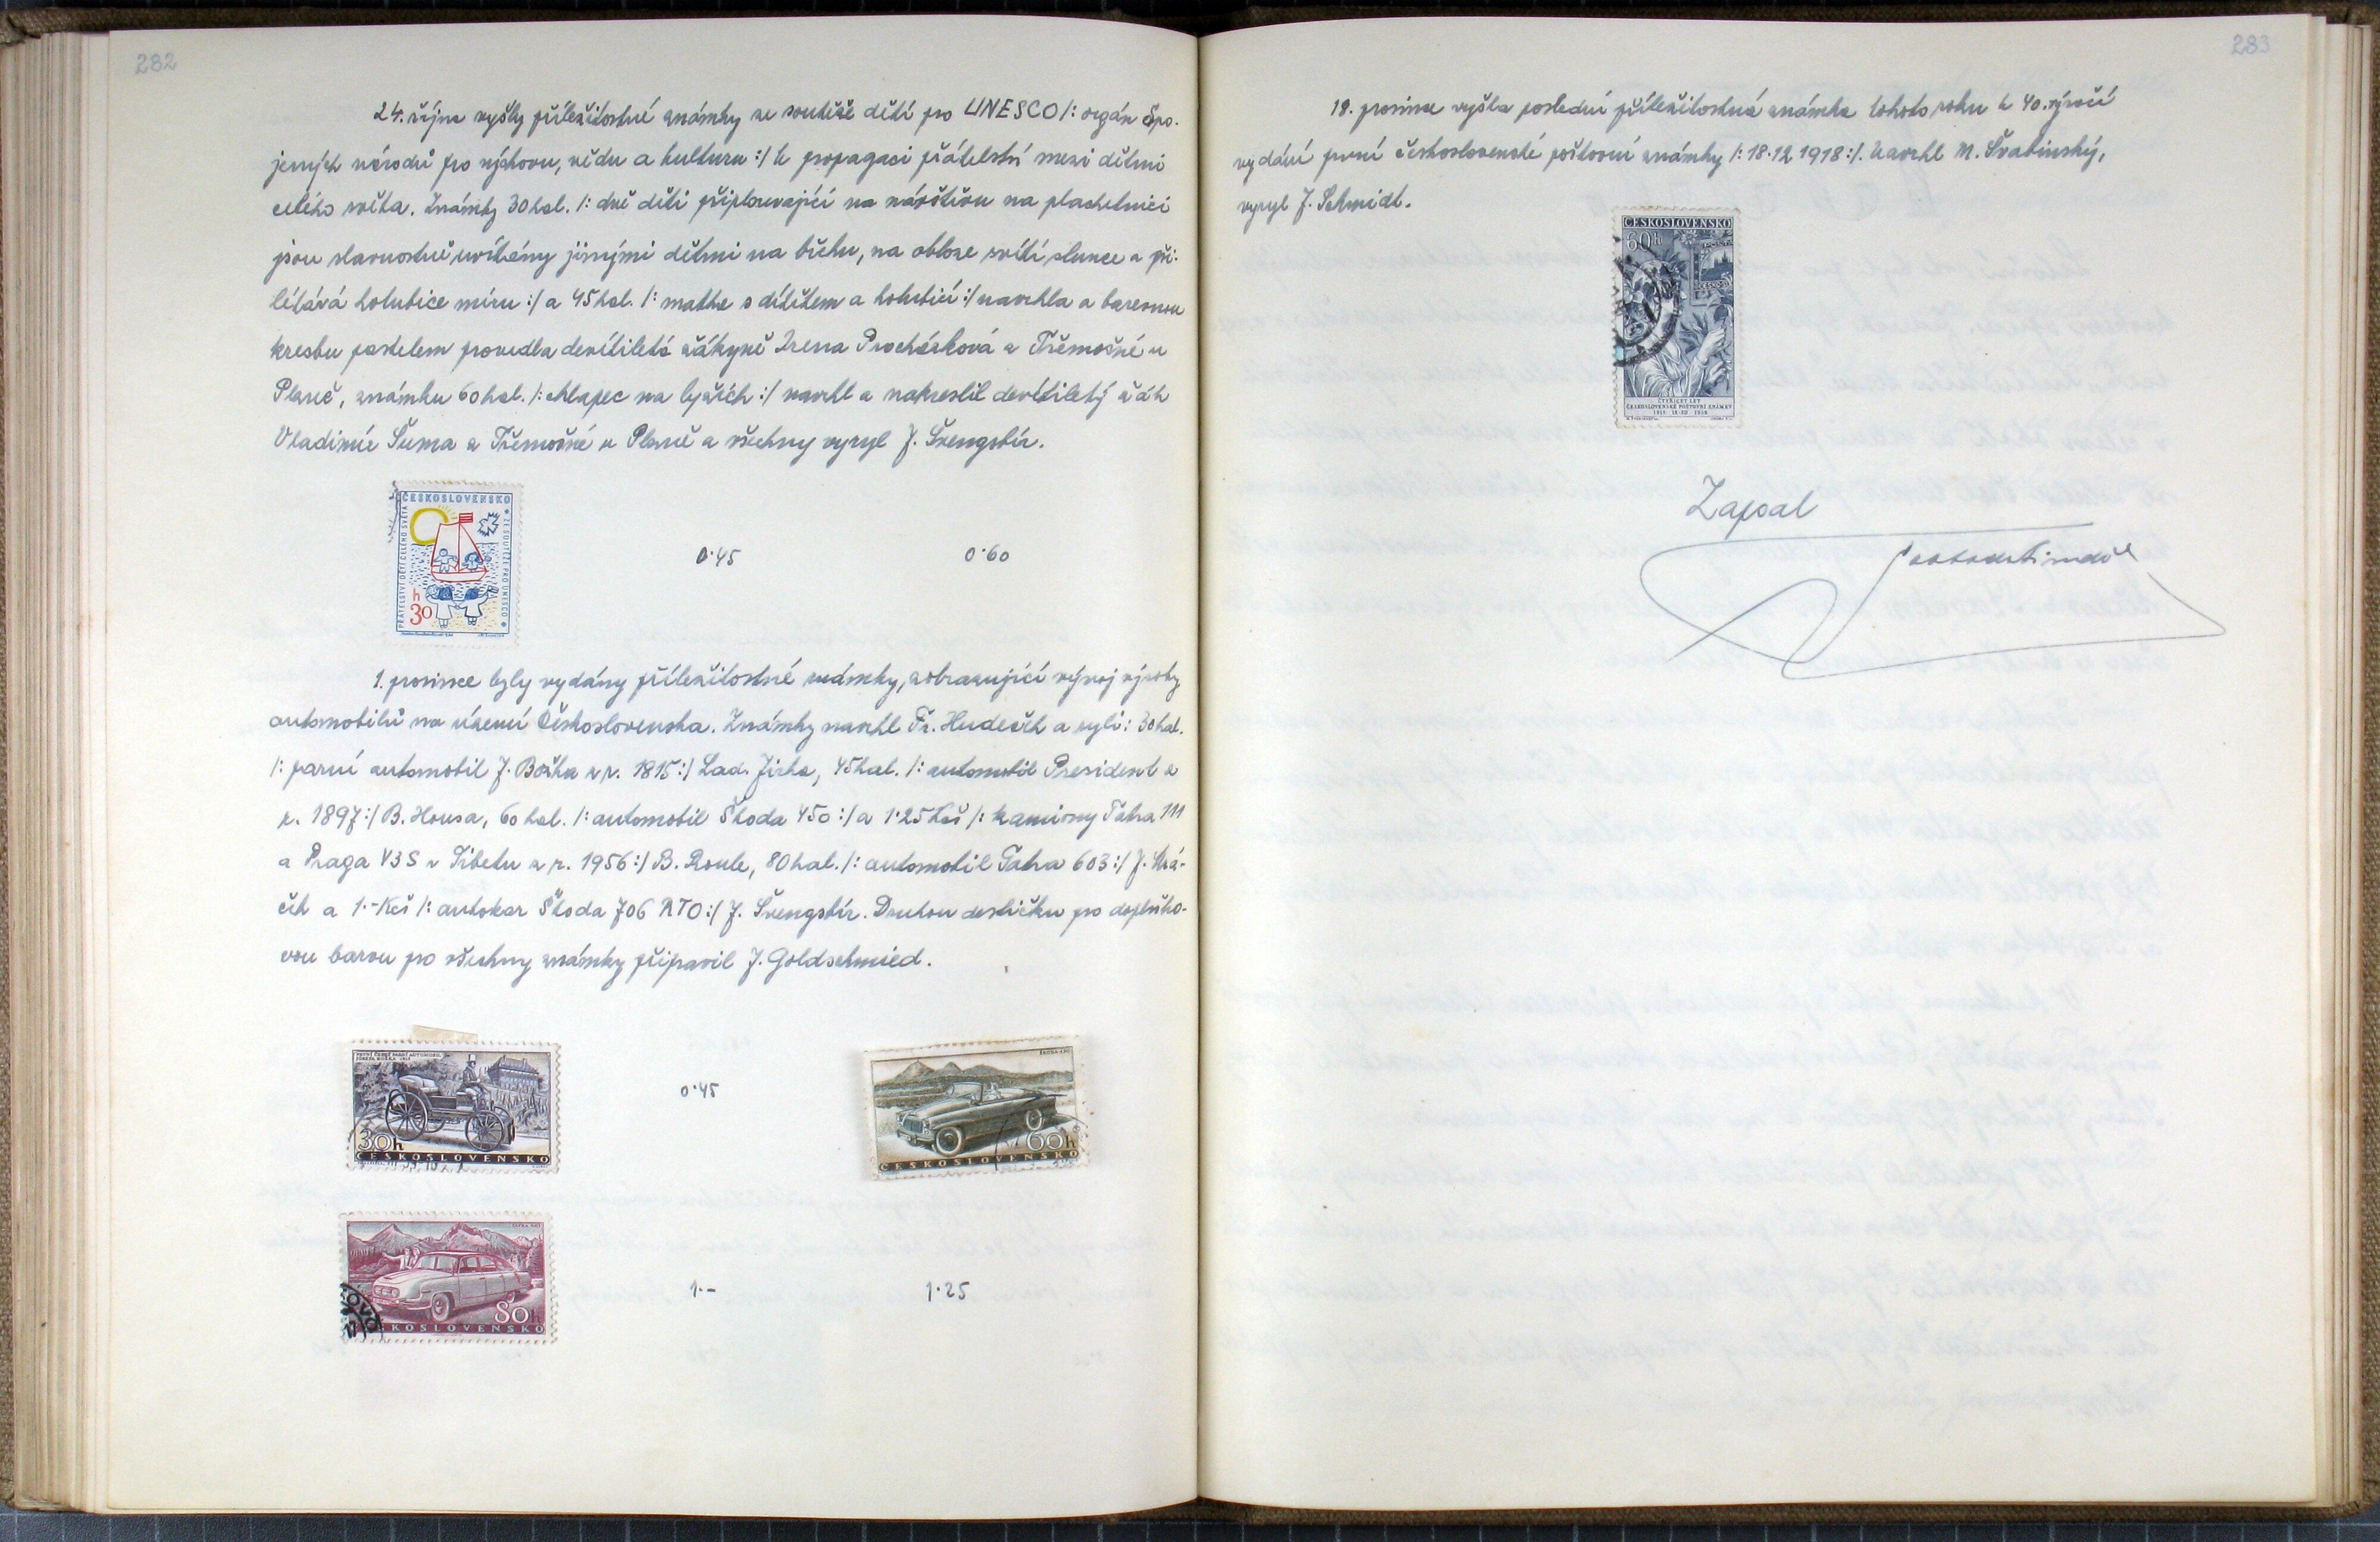 282
24. října vyšly příležitostné známky ze soutěže dětí pro UNESCO /: orgán Spo-
jených národů pro výchovu, vědu a kulturu :/ k propagaci přátelství mezi dětmi
celého světa. Známky 30 hal. /: dvě děti připlouvající na návštěvu na plachetnici
jsou slavnostně uvítány jinými dětmi na břehu, na obloze svítí slunce a při-
létává holubice míru :/ a 45 hal. /: matka s dítětem a holubicí :/ navrhla a barevnou
kresbu pastelem provedla devítiletá žákyně Irena Procházková z Třemošné u
Plzně, známku 60 hal. /: chlapec na lyžích :/ navrhl a nakreslil devítiletý žák
Vladimír Šuma z Třemošné u Plzně a všechny vyryl J. Švengsbír.
ČESKOSLOVENSKO
PŘÁTELSTVÍ DĚTÍ CELÉHO SVĚTA
ZE SOUTĚŽE PRO UNESCO
h
30
0·45
0·60
1. prosince byly vydány příležitostné známky, zobrazující vývoj výroby
automobilů na území Československa. Známky navrhl Fr. Hudeček a ryli: 30 hal.
/: parní automobil J. Božka z r. 1815 :/ Lad. Jirka, 45 hal. /: automobil President z
r. 1897 :/ B. Housa, 60 hal. /: automobil Škoda 450 :/ a 1·25 Kčs /: kamiony Tatra 111
a Praga V3S v Tibetu z r. 1956 :/ B. Roule, 80 hal. /: automobil Tatra 603 :/ J. Mrá-
ček a 1·- Kčs /: autokar Škoda 706 RTO :/ J. Švengsbír. Druhou destičku pro doplňko-
vou barvu pro všechny známky připravil J. Goldschmied.
PRVNÍ ČESKÝ PARNÍ AUTOMOBIL
JOSEFA BOŽKA 1815
30h
ČESKOSLOVENSKO
0·45
ŠKODA 450
60h
ČESKOSLOVENSKO
TATRA 603
80h
KOSLOVENSKO
1·-
1·25
283
18. prosince vyšla poslední příležitostná známka tohoto roku k 40. výročí
vydání první československé poštovní známky /: 18·12 1918 :/. Navrhl M. Švabinský,
vyryl J. Schmidt.
ČESKOSLOVENSKO
60h
ČTYŘICET LET
ČESKOSLOVENSKÉ POŠTOVNÍ ZNÁMKY
1918 18·XII 1958
Zapsal